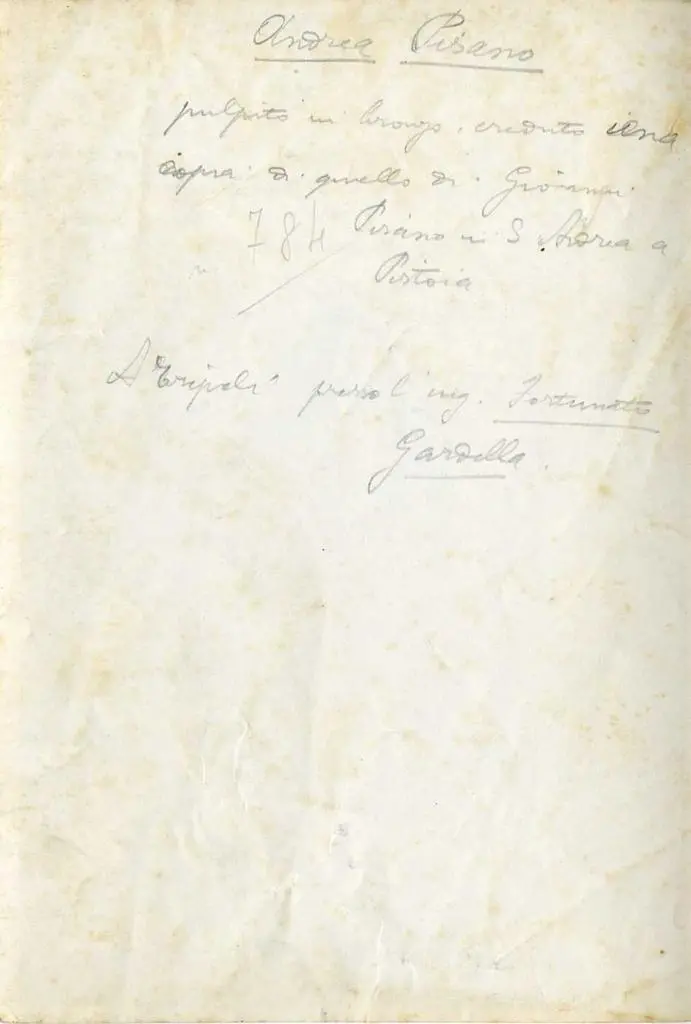 Andrea Pisano
pulpito in bronzo, creduto una
copia di quello di Giovanni
784 Pisano in S Andrea a
Pistoia
A Tripoli presso l'ing. Fortunato
Gardella.